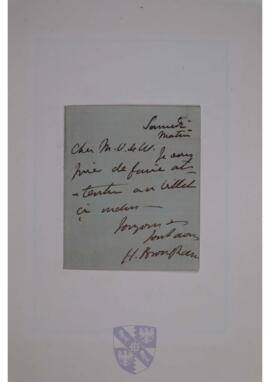 Samedi
Matin
Cher M. V. de W. Je vous
prie de faire at-
-tention au billet
ci inclus
H. Brougham